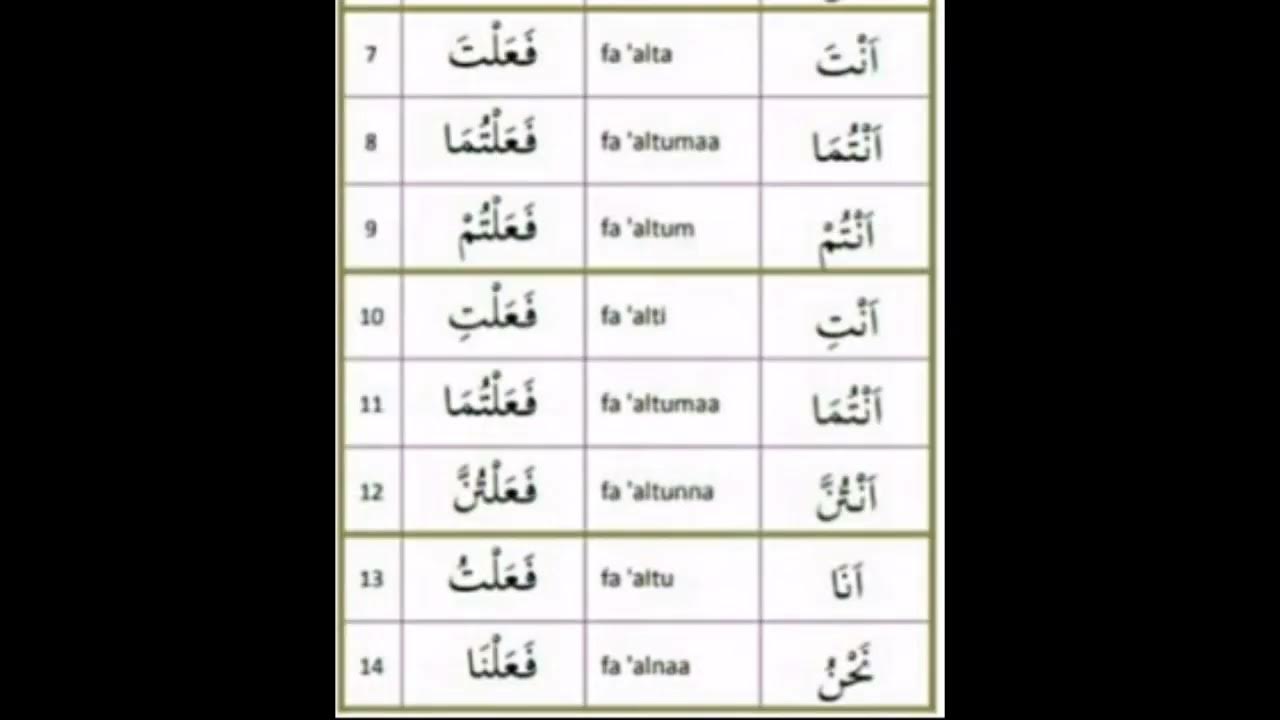 7 فَعَلْتَ fa 'alta اَنْتَ
8 فَعَلْتُمَا fa 'altumaa اَنْتُمَا
9 فَعَلْتُمْ fa 'altum اَنْتُمْ
10 فَعَلْتِ fa 'alti اَنْتِ
11 فَعَلْتُمَا fa 'altumaa اَنْتُمَا
12 فَعَلْتُنَّ fa 'altunna اَنْتُنَّ
13 فَعَلْتُ fa 'altu اَنَا
14 فَعَلْنَا fa 'alnaa نَحْنُ